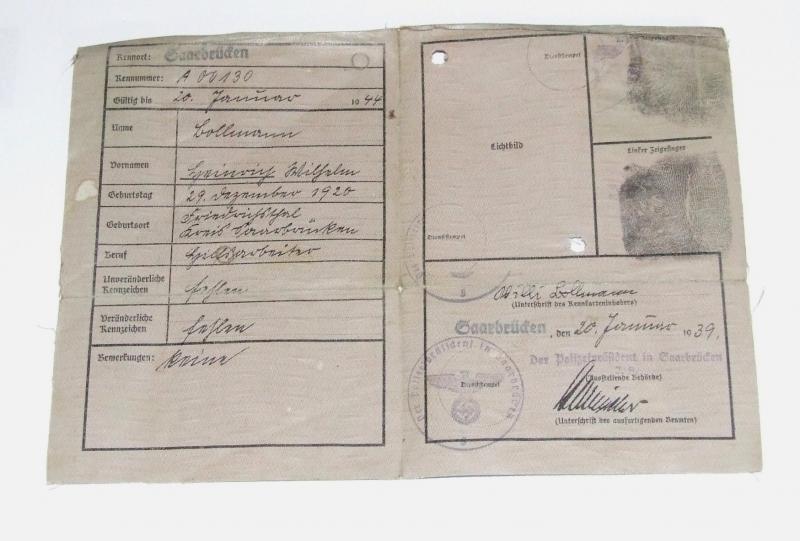 Kennort: Saarbrücken
Kennummer: A 00130
Gültig bis 20. Januar 1944
Name Bollmann
Vornamen Heinrich Wilhelm
Geburtstag 29. Dezember 1920
Geburtsort Friedrichsthal
Kreis Saarbrücken
Beruf Hilfsarbeiter
Unveränderliche
Kennzeichen fehlen
Veränderliche
Kennzeichen fehlen
Bemerkungen: Keine
Dienststempel
Lichtbild
Dienststempel
Rechter Zeigefinger
Linker Zeigefinger
Willi Bollmann
(Unterschrift des Kennkarteninhabers)
Saarbrücken, den 20. Januar 1939.
Der Polizeipräsident in Saarbrücken
(Ausstellende Behörde)
Dienststempel
Der Polizeipräsident in Saarbrücken
8
(Unterschrift des ausfertigenden Beamten)